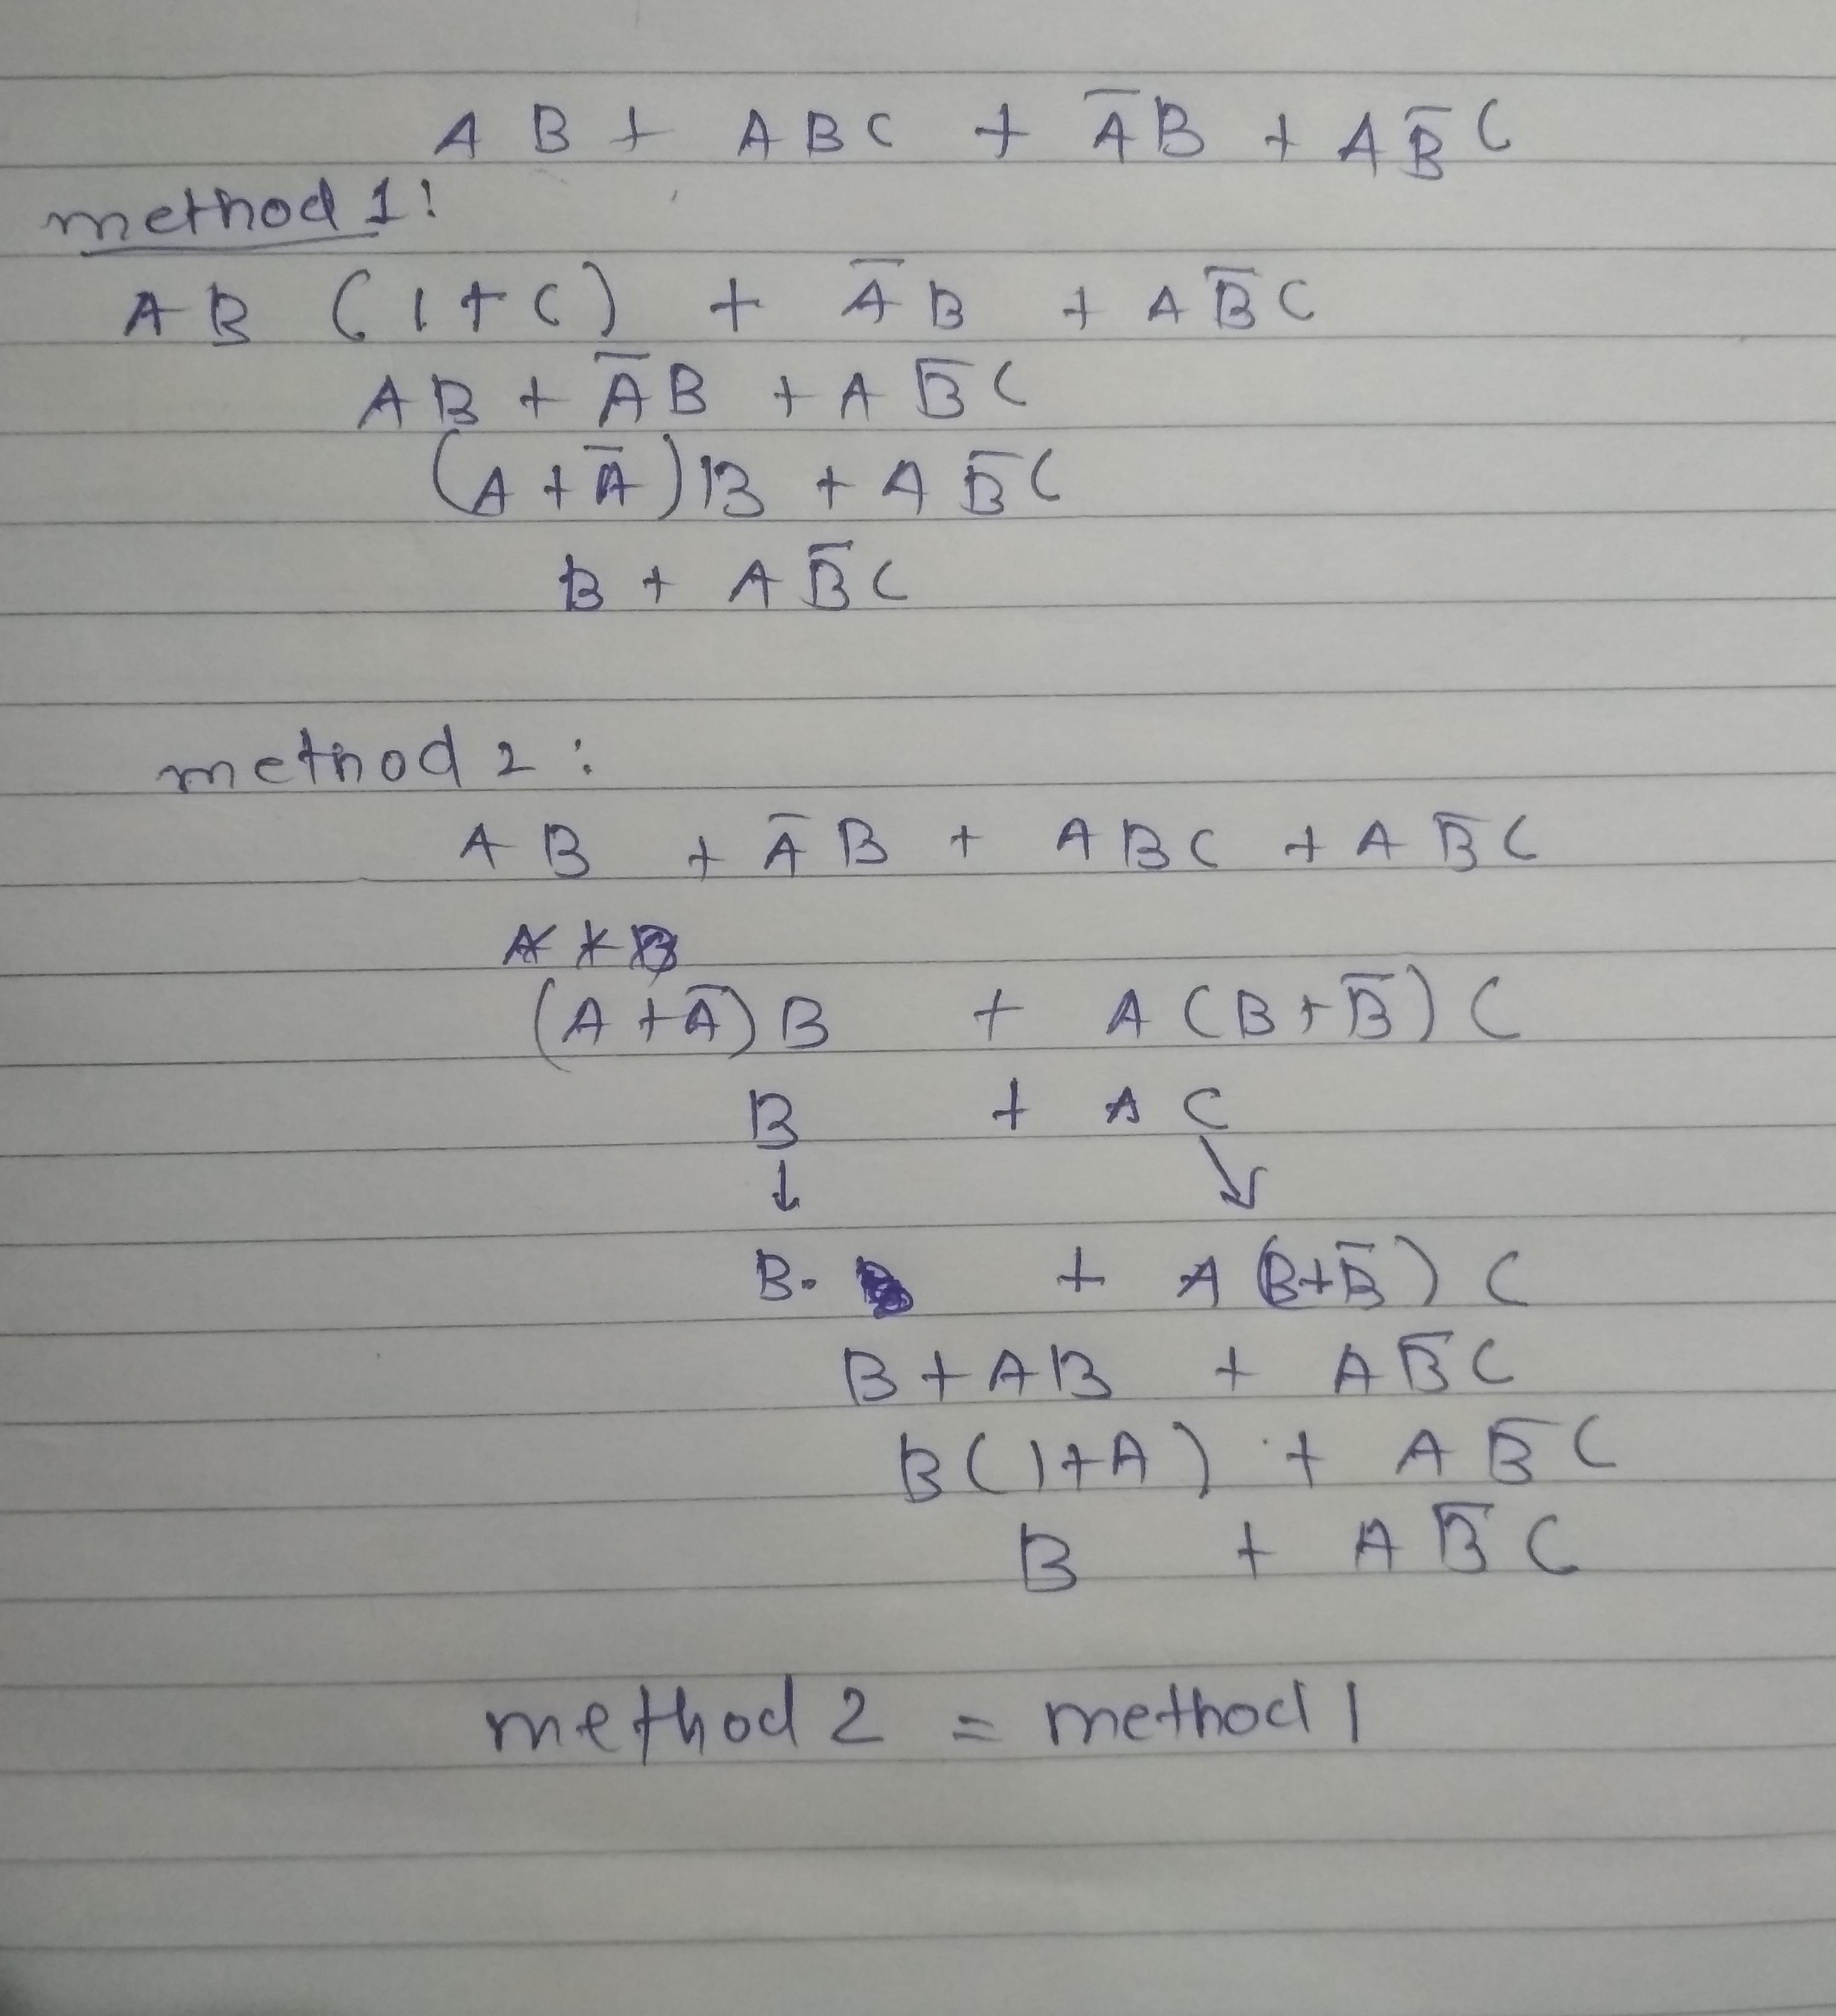 AB + ABC + A̅B + AB̅C
method 1:
AB (1+C) + A̅B + AB̅C
AB + A̅B + AB̅C
(A+A̅)B + AB̅C
B + AB̅C
method 2:
AB + A̅B + ABC + AB̅C
(A+A̅)B + A(B+B̅)C
B + AC
↓ ↘
B. + A(B+B̅)C
B+AB + AB̅C
B(1+A) + AB̅C
B + AB̅C
method 2 = method 1